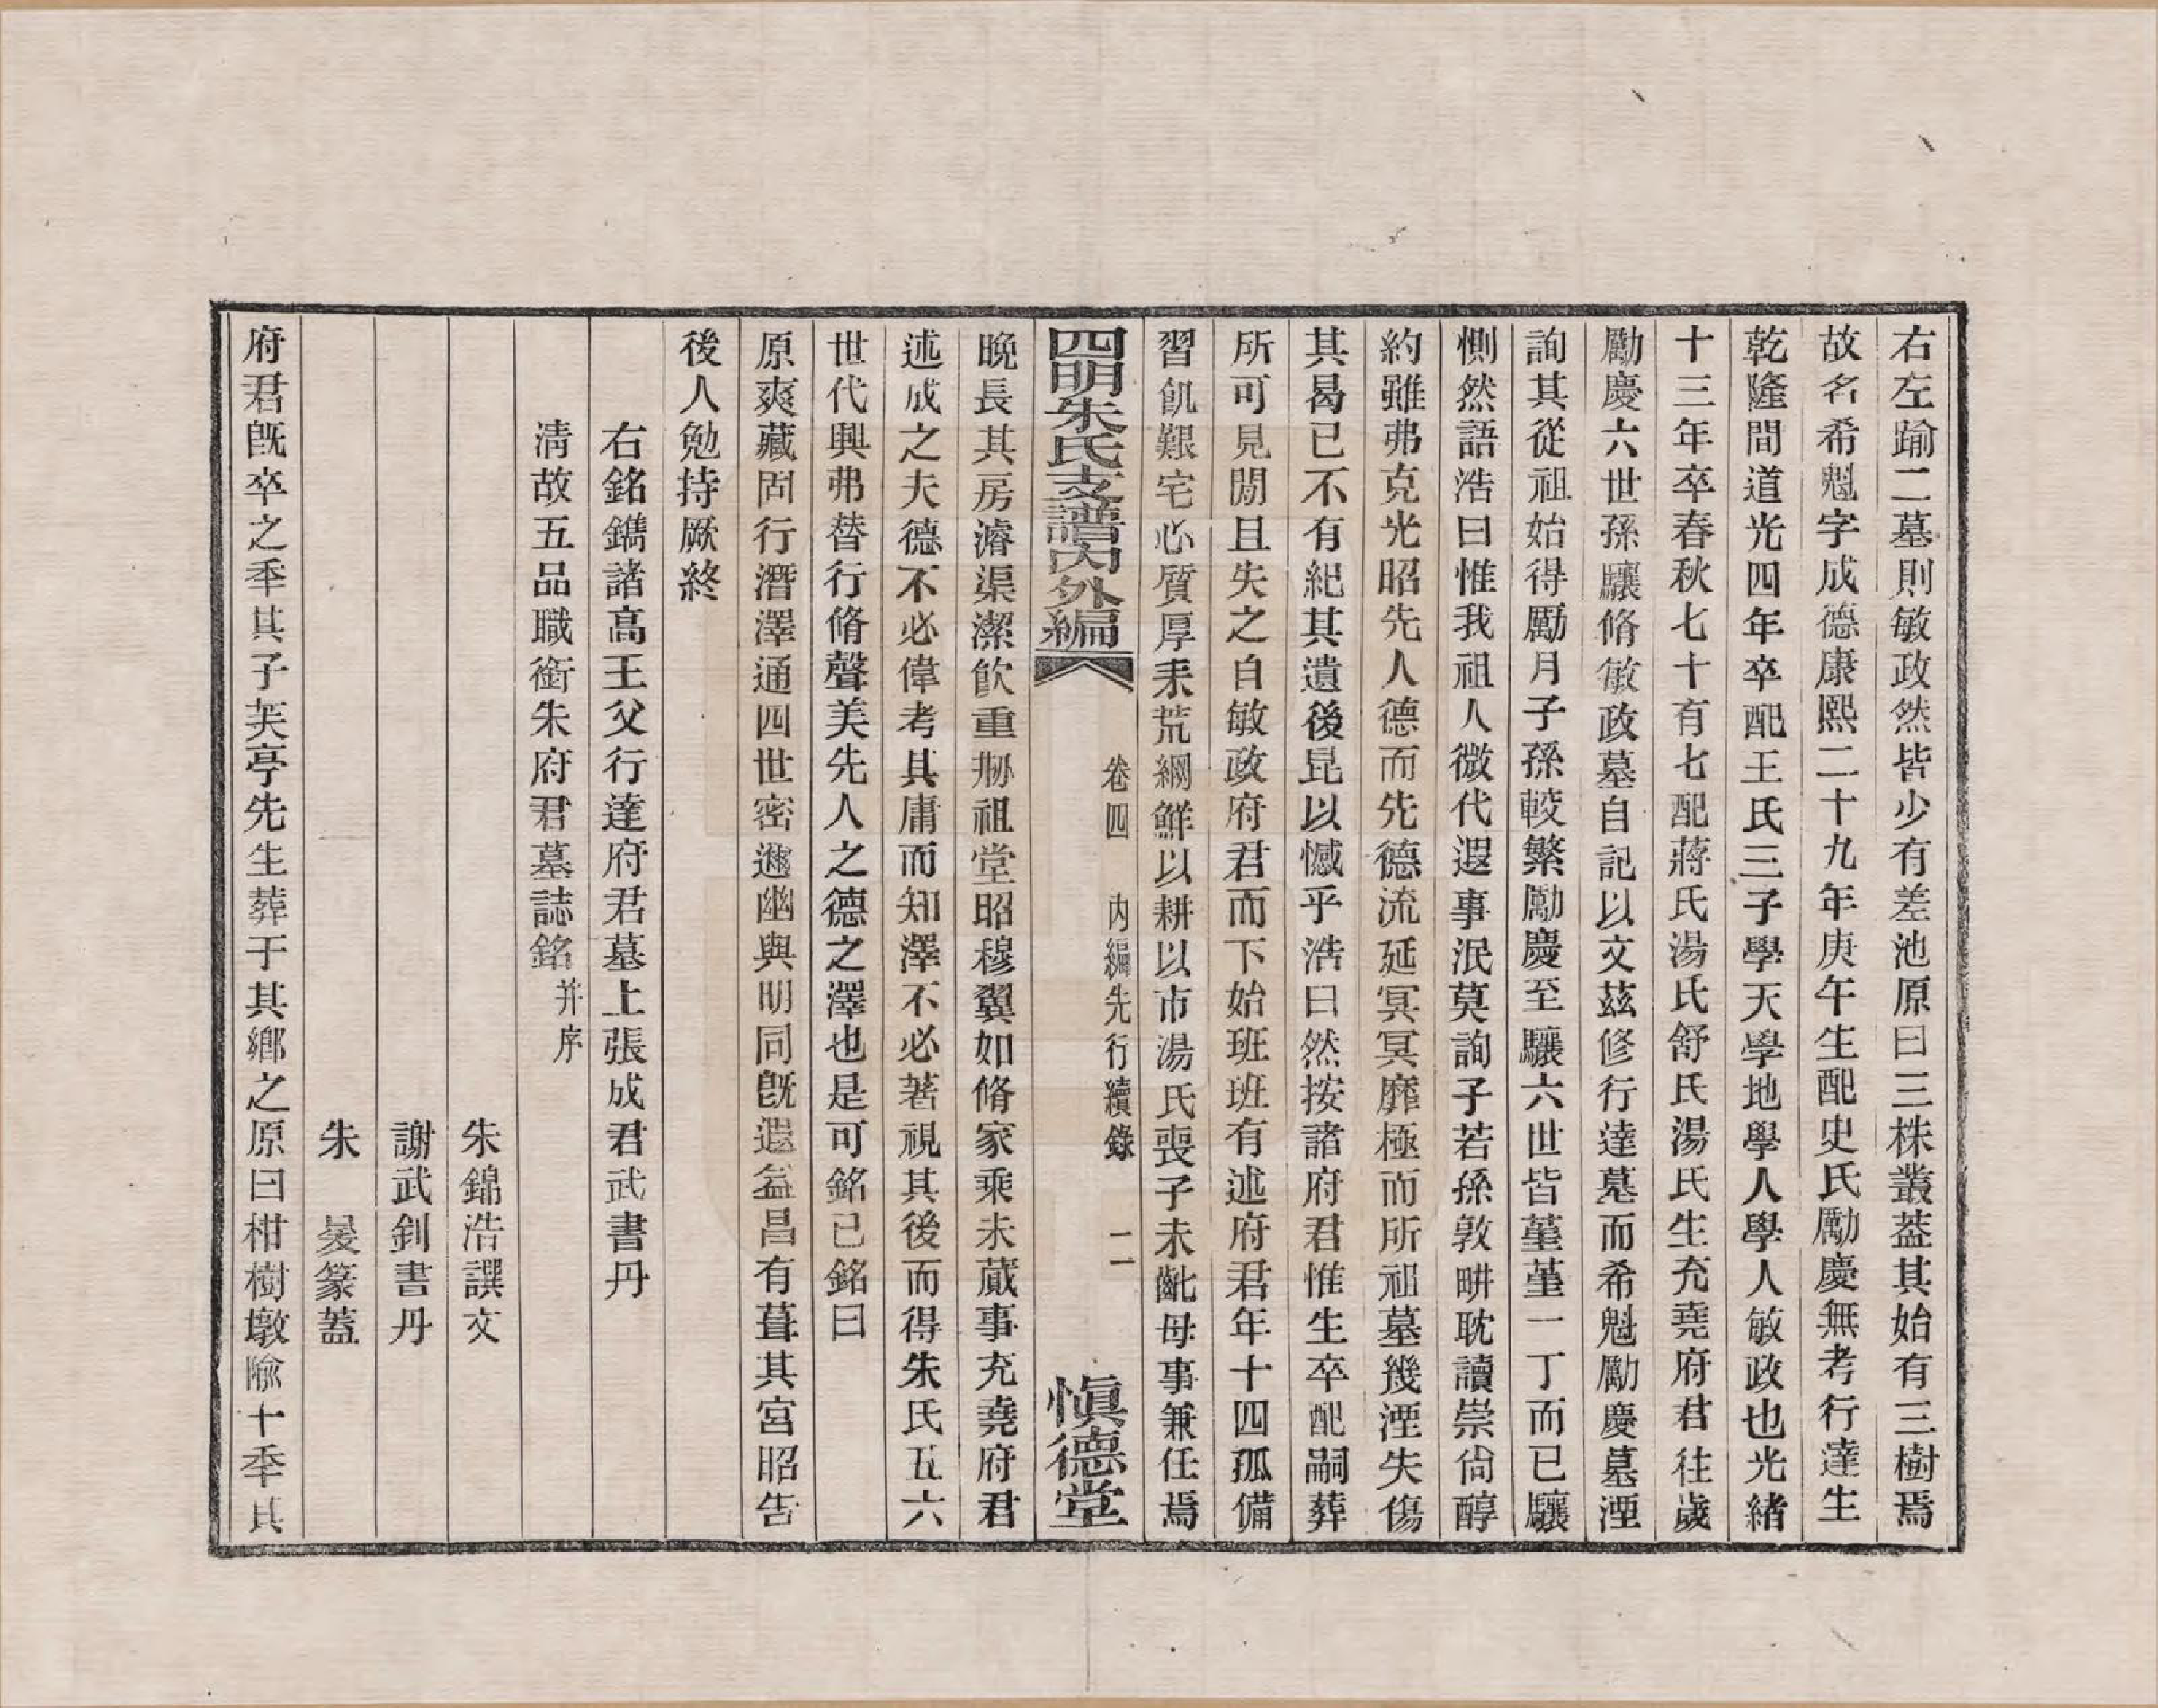 右左踰二墓則敏政然皆少有差池原曰三株叢葢其始有三樹焉
故名希魁字成德康熙二十九年庚午生配史氏勵慶無考行達生
乾隆間道光四年卒配王氏三子學天學地學人學人敏政也光緒
十三年卒春秋七十有七配蔣氏湯氏舒氏湯氏生充堯府君往歲
勵慶六世孫驤脩敏政墓自記以文茲修行達墓而希魁勵慶墓湮
詢其從祖始得勵月子孫較繁勵慶至驤六世皆堇堇一丁而已驤
惻然語浩曰惟我祖人微代遐事泯莫詢子若孫敦畊耽讀崇尙醇
約雖弗克光昭先人德而先德流延冥冥靡極而所祖墓幾湮失傷
其曷已不有紀其遺後昆以憾乎浩曰然按諸府君惟生卒配嗣葬
所可見聞且失之自敏政府君而下始班班有述府君年十四孤備
習飢艱宅心質厚耒荒綱鮮以耕以市湯氏喪子未齔母事兼任焉
四明朱氏支譜內外編 卷四 內編先行續錄 二 愼德堂
晩長其房濬渠潔飮重刱祖堂昭穆翼如脩家乘未蕆事充堯府君
述成之夫德不必偉考其庸而知澤不必著視其後而得朱氏五六
世代興弗替行脩聲美先人之德之澤也是可銘已銘曰
原爽藏固行潛澤通四世密邇幽與明同旣遐益昌有葺其宮昭告
後人勉持厥終
右銘鐫諸高王父行達府君墓上張成君武書丹
淸故五品職銜朱府君墓誌銘并序
朱錦浩譔文
謝武釗書丹
朱 㬊篆蓋
府君旣卒之秊其子芙亭先生葬于其鄕之原曰柑樹墩隃十秊其